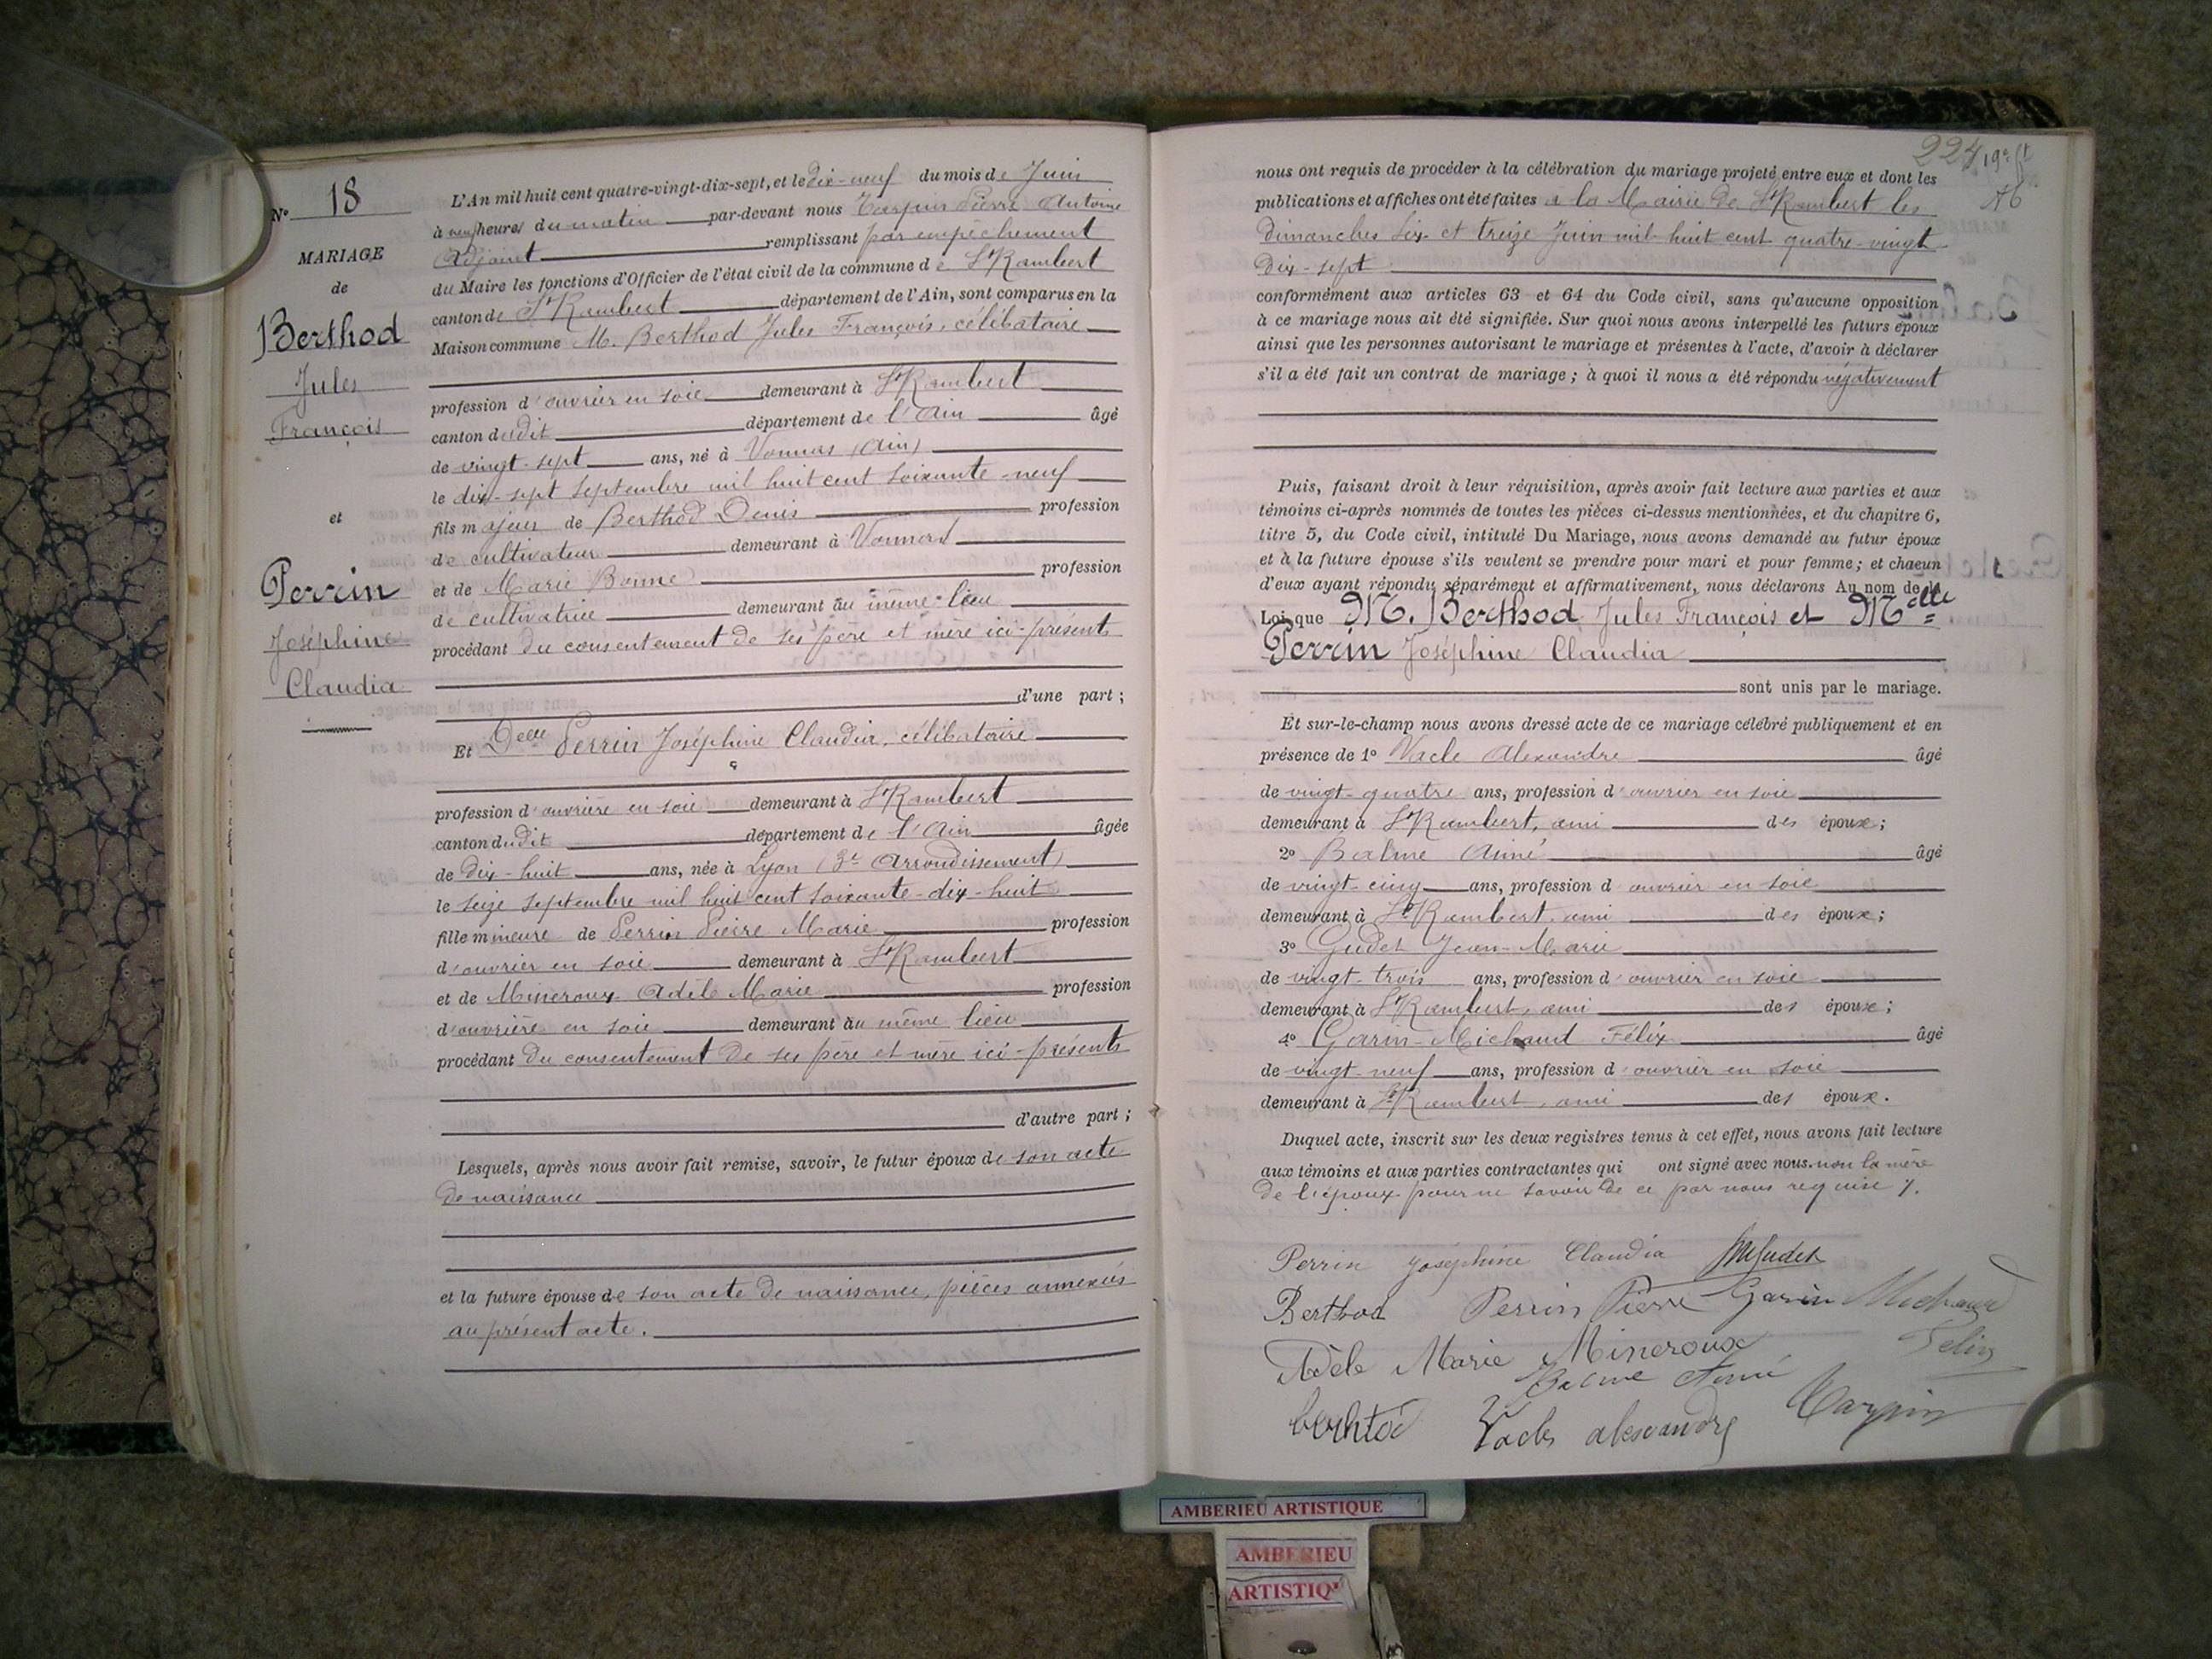 N° 18
MARIAGE
de
Berthod
Jules
François
et
Perrin
Joséphine
Claudia
L'An mil huit cent quatre-vingt-dix-sept, et le dix-neuf du mois de Juin
à neuf heures du matin par-devant nous Tarpin Pierre Antoine
Adjoint remplissant par empêchement
du Maire les fonctions d'Officier de l'état civil de la commune de St Rambert
canton de St Rambert département de l'Ain, sont comparus en la
Maison commune M. Berthod Jules François, célibataire
profession d'ouvrier en soie demeurant à St Rambert
canton dudit département de l'Ain âgé
de vingt-sept ans, né à Vonnas (Ain)
le dix-sept Septembre mil huit cent soixante-neuf
fils majeur de Berthod Denis profession
de cultivateur demeurant à Vonnas
et de Marie Bonne profession
de cultivatrice demeurant au même lieu
procédant du consentement de ses père et mère ici-présents
d'une part ;
Et Delle Perrin Joséphine Claudia, célibataire
profession d'ouvrière en soie demeurant à St Rambert
canton dudit département de l'Ain âgée
de dix-huit ans, née à Lyon (3e Arrondissement)
le seize septembre mil huit cent soixante-dix-huit
fille mineure de Perrin Pierre Marie profession
d'ouvrier en soie demeurant à St Rambert
et de Mineroux Adèle Marie profession
d'ouvrière en soie demeurant au même lieu
procédant du consentement de ses père et mère ici-présents
d'autre part ;
Lesquels, après nous avoir fait remise, savoir, le futur époux de son acte
de naissance
et la future épouse de son acte de naissance, pièces annexées
au présent acte.
224 19e ft
A6
nous ont requis de procéder à la célébration du mariage projeté entre eux et dont les
publications et affiches ont été faites à la Mairie de St Rambert les
dimanches six et treize Juin mil huit cent quatre-vingt
dix-sept
conformément aux articles 63 et 64 du Code civil, sans qu'aucune opposition
à ce mariage nous ait été signifiée. Sur quoi nous avons interpellé les futurs époux
ainsi que les personnes autorisant le mariage et présentes à l'acte, d'avoir à déclarer
s'il a été fait un contrat de mariage ; à quoi il nous a été répondu négativement
Puis, faisant droit à leur réquisition, après avoir fait lecture aux parties et aux
témoins ci-après nommés de toutes les pièces ci-dessus mentionnées, et du chapitre 6,
titre 5, du Code civil, intitulé Du Mariage, nous avons demandé au futur époux
et à la future épouse s'ils veulent se prendre pour mari et pour femme ; et chacun
d'eux ayant répondu séparément et affirmativement, nous déclarons Au nom de la
Loi que M. Berthod Jules François et Melle
Perrin Joséphine Claudia
sont unis par le mariage.
Et sur-le-champ nous avons dressé acte de ce mariage célébré publiquement et en
présence de 1° Vacle Alexandre âgé
de vingt-quatre ans, profession d'ouvrier en soie
demeurant à St Rambert, ami des époux ;
2° Balme Aimé âgé
de vingt-cinq ans, profession d'ouvrier en soie
demeurant à St Rambert, ami des époux ;
3° Gudet Jean-Marie
de vingt-trois ans, profession d'ouvrier en soie
demeurant à St Rambert, ami des époux ;
4° Garin-Michaud Félix âgé
de vingt-neuf ans, profession d'ouvrier en soie
demeurant à St Rambert, ami des époux.
Duquel acte, inscrit sur les deux registres tenus à cet effet, nous avons fait lecture
aux témoins et aux parties contractantes qui ont signé avec nous. non la mère
de l'époux pour ne savoir de ce par nous requise
Perrin Joséphine Claudia JM Gudet
Berthod Perrin Pierre Garin Michaud
Félix
Adèle Marie Mineroux
Balme Aimé
berhtod Vacle alexandre Tarpin
AMBERIEU ARTISTIQUE
AMBERIEU
ARTISTIQ